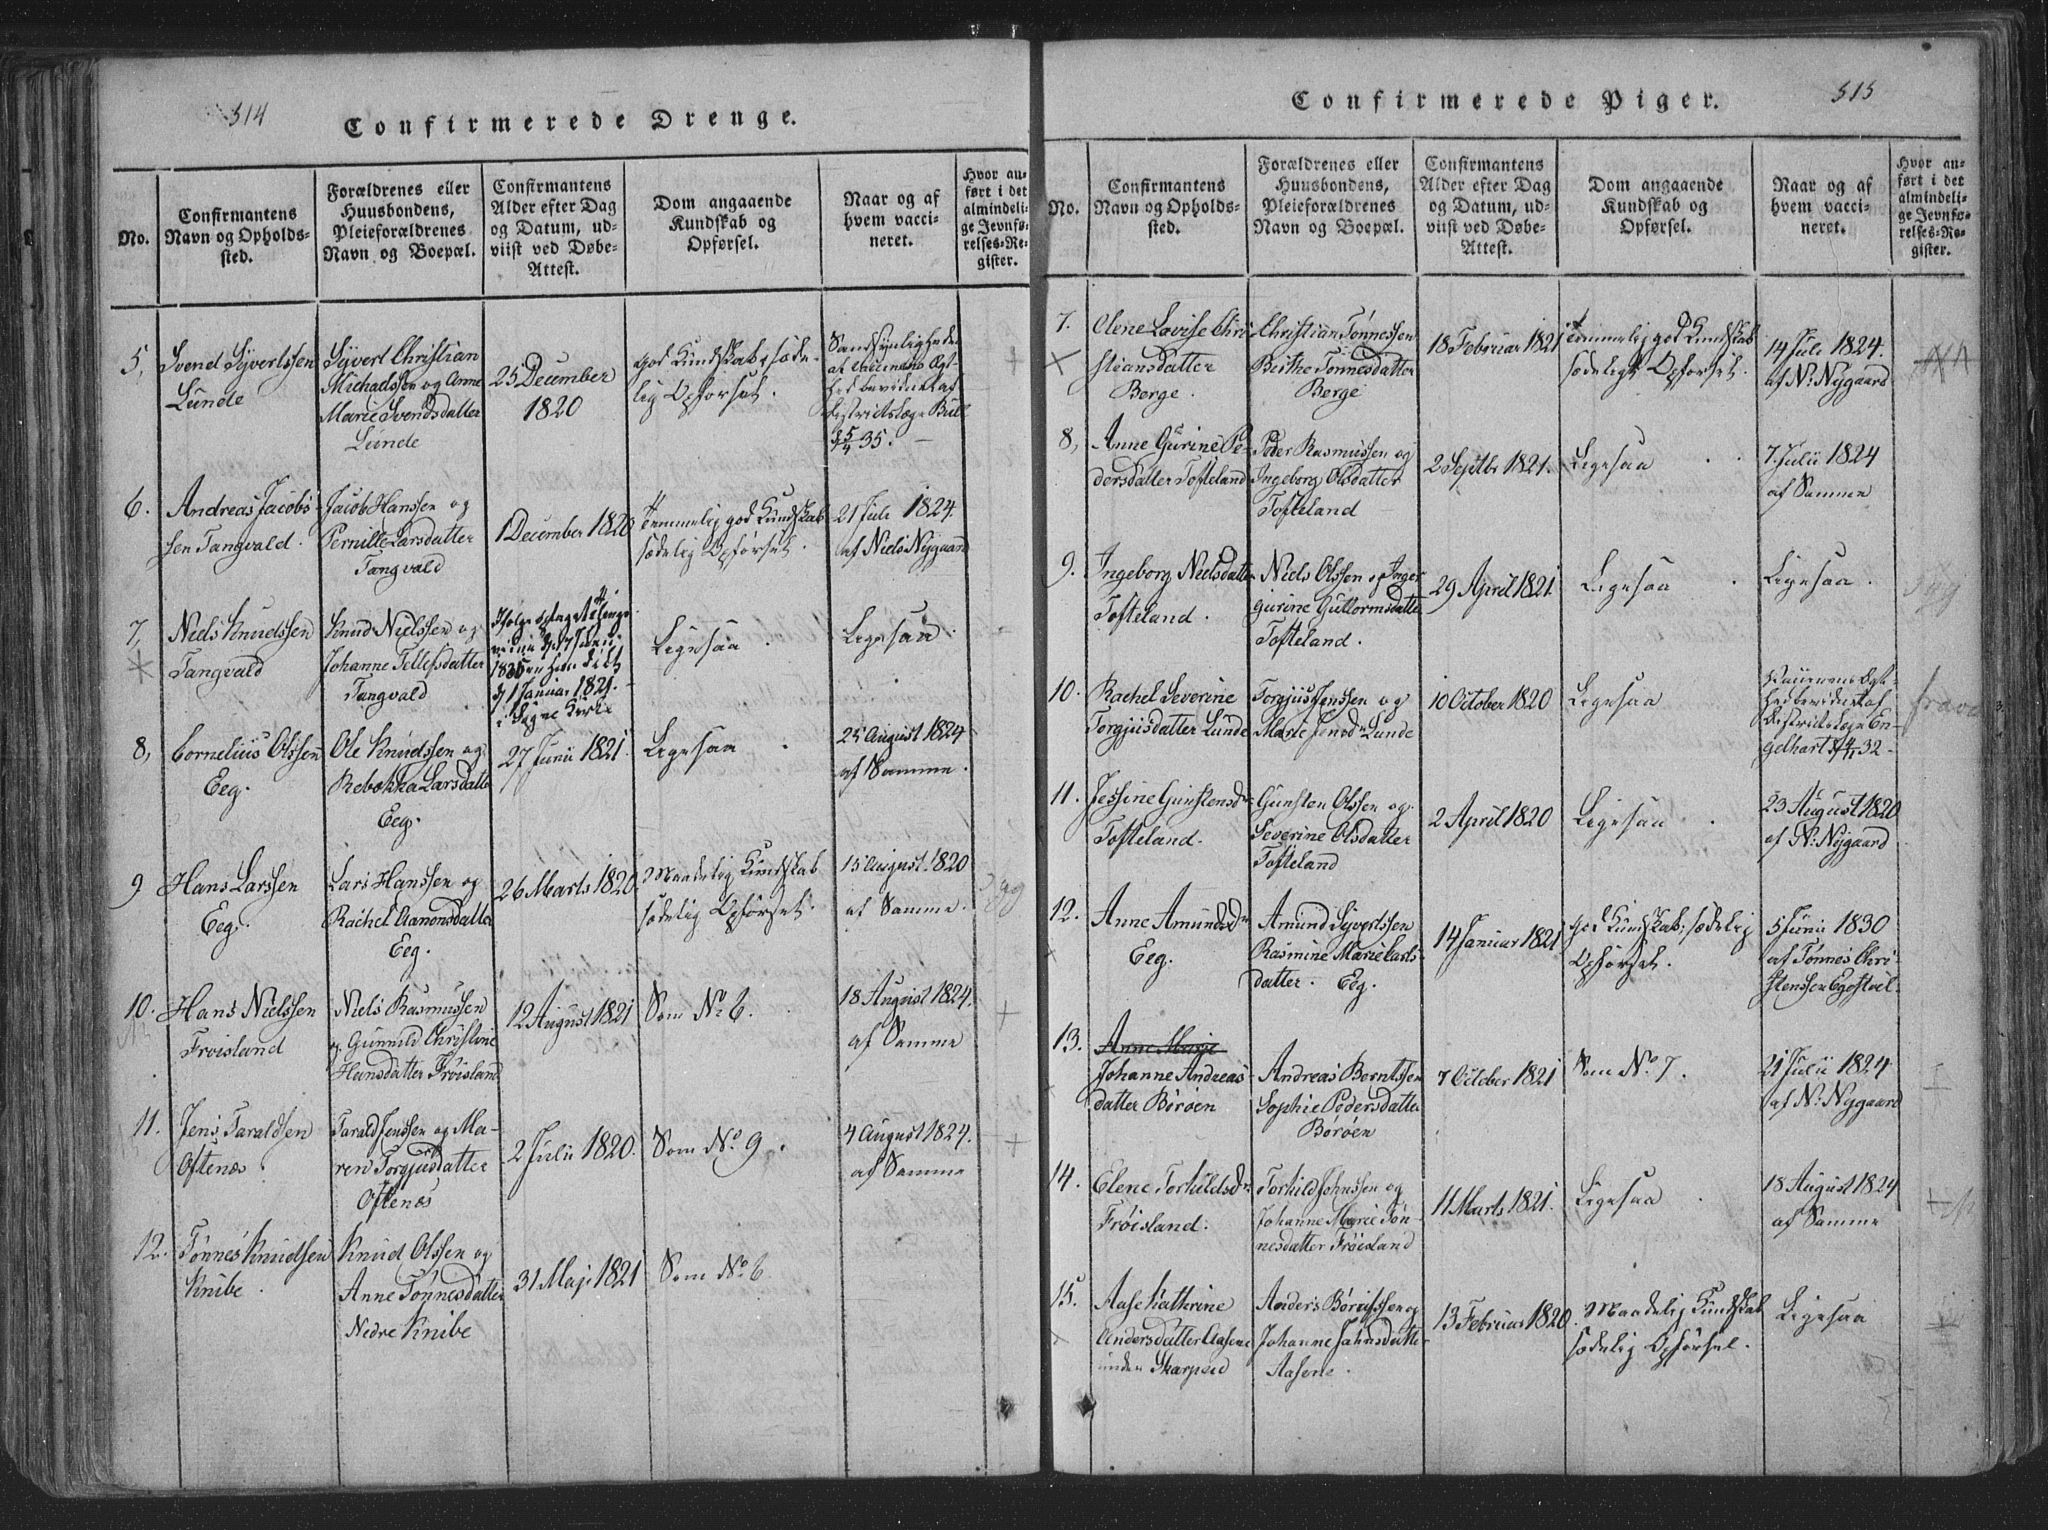 514
Confirmerede Drenge.
No.
Confirmantens
Navn og Opholds-
sted.
Forældrenes eller
Huusbondens,
Pleieforældrenes
Navn og Boepæl.
Confirmantens
Alder efter Dag
og Datum, ud-
viist ved Døbe-
Attest.
Dom angaaende
Kundskab og
Opførsel.
Naar og af
hvem vacci-
neret.
Hvor an-
ført i det
almindeli-
ge Jevnfø-
relses-Re-
gister.
5,
Svend Syvertssen
Lunde
Syvert Christian
Michaelssen og Anne
Marie Svendsdatter
Lunde
25 December
1820
god Kundskab, sæde-
lig Opførsel.
af
Districtslæge Bull
35.
6.
Andreas Jacobs-
sen Tangvald.
Jacob Hanssen og
Pernille Larsdatter
Tangvald
1 December 1820
Temmelig god Kundskab
sædelig Opførsel.
21 Juli 1824.
af Niels Nygaard
7,
Niels Knudssen
Tangvald
Knud Nielssen og
Johanne Tellefsdatter
Tangvald
1 Januar 1821.
i Søgne Kirke
Ligesaa
Ligesaa
8,
Cornelius Olssen
Eeg.
Ole Knudssen og
Rebekka Larsdatter
Eeg.
27 Junii 1821.
Ligesaa
25 August 1824
af Samme.
9
Hans Larssen
Eeg.
Lars Hanssen og
Rachel Aanonsdatter
Eeg.
26 Marts 1820.
Maadelig Kundskab
sædelig Opførsel.
15 August 1820
af Samme.
10.
Hans Nielssen
Frøisland
Niels Rasmussen
og Gunnild Christine
Hansdatter Frøisland
12 August 1821
Som No 6.
18 August 1824.
af Samme
+
11.
Jens Taraldsen
Oftenæs.
Tarald Jenssen og Ma-
ren Torgjusdatter
Oftenæs
2 Julii 1820.
Som No 9.
4 August 1824.
af Samme
+
12.
Tønnes Knudsen
Knibe.
Knud Olssen og
Anne Tønnesdatter
Nedre Knibe
31 Maji 1821
Som No 6.
515
Confirmerede Piger.
No.
Confirmantens
Navn og Opholds-
sted.
Forældrenes eller
Huusbondens,
Pleieforældrenes
Navn og Boepæl.
Confirmantens
Alder efter Dag
og Datum, ud-
viist ved Døbe-
Attest.
Dom angaaende
Kundskab og
Opførsel.
Naar og af
hvem vacci-
neret.
Hvor an-
ført i det
almindeli-
ge Jevnfø-
relses-Re-
gister.
7.
Olene Lovise Chri-
stiansdatter
Berge.
Christian Tønnessen
Berthe Tønnesdatter
Berge
18 Februar 1821
Temmelig god Kundskab
sædeligt Opførsel.
14 Juli 1824.
af N. Nygaard
8,
Anne Gurine Pe-
dersdatter Tofteland
Peder Rasmussen og
Ingeborg Olsdatter
Tofteland
2 Septbr 1821.
Ligesaa
7 Julii 1824
af Samme
9.
Ingeborg Nielsdatter
Tofteland.
Niels Olssen og Inger
gurine Guttormsdatter
Tofteland.
29 April 1821.
Ligesaa
Ligesaa.
10.
Rachel Severine
Torgjusdatter Lunde
Torgjus Jenssen og
Marie Jensdr Lunde
10 October 1820
Ligesaa
Districtslæge En-
gelhart 32-
11.
Jessine Gunstensdr
Tofteland.
Gunsten Olssen og
Severine Olsdatter
Tofteland
2 April 1820
Ligesaa
23 August 1820
af N. Nygaard
12.
Anne Amundsdr
Eeg.
Amund Syvertssen
Rasmine Marie Carls-
datter. Eeg.
14 Januar 1821
god Kundskab, sædelig
Opførsel.
5 Junii 1830
af Tønnes Chri-
stenssen
13.
Anne Marie
Johanne Andreas-
datter Børøen
Andreas Berntssen
Sophie Pedersdatter
Børøen
7 October 1821
Som No 7.
21 Julii 1824
af N. Nygaard
14.
Elene Torkildsdr
Frøisland.
Torkild Johnssen og
Johanne Marie Tøn-
nesdatter Frøisland
11 Marts 1821.
Ligesaa
18 August 1824
af Samme
15.
Aase Kathrine
Andersdatter Aasene
under Skarpeid
Anders Børufssen og
Johanne Jahnsdatter
Aasene.
13 Februar 1820.
Maadelig Kundskab
sædelig Opførsel.
Ligesaa